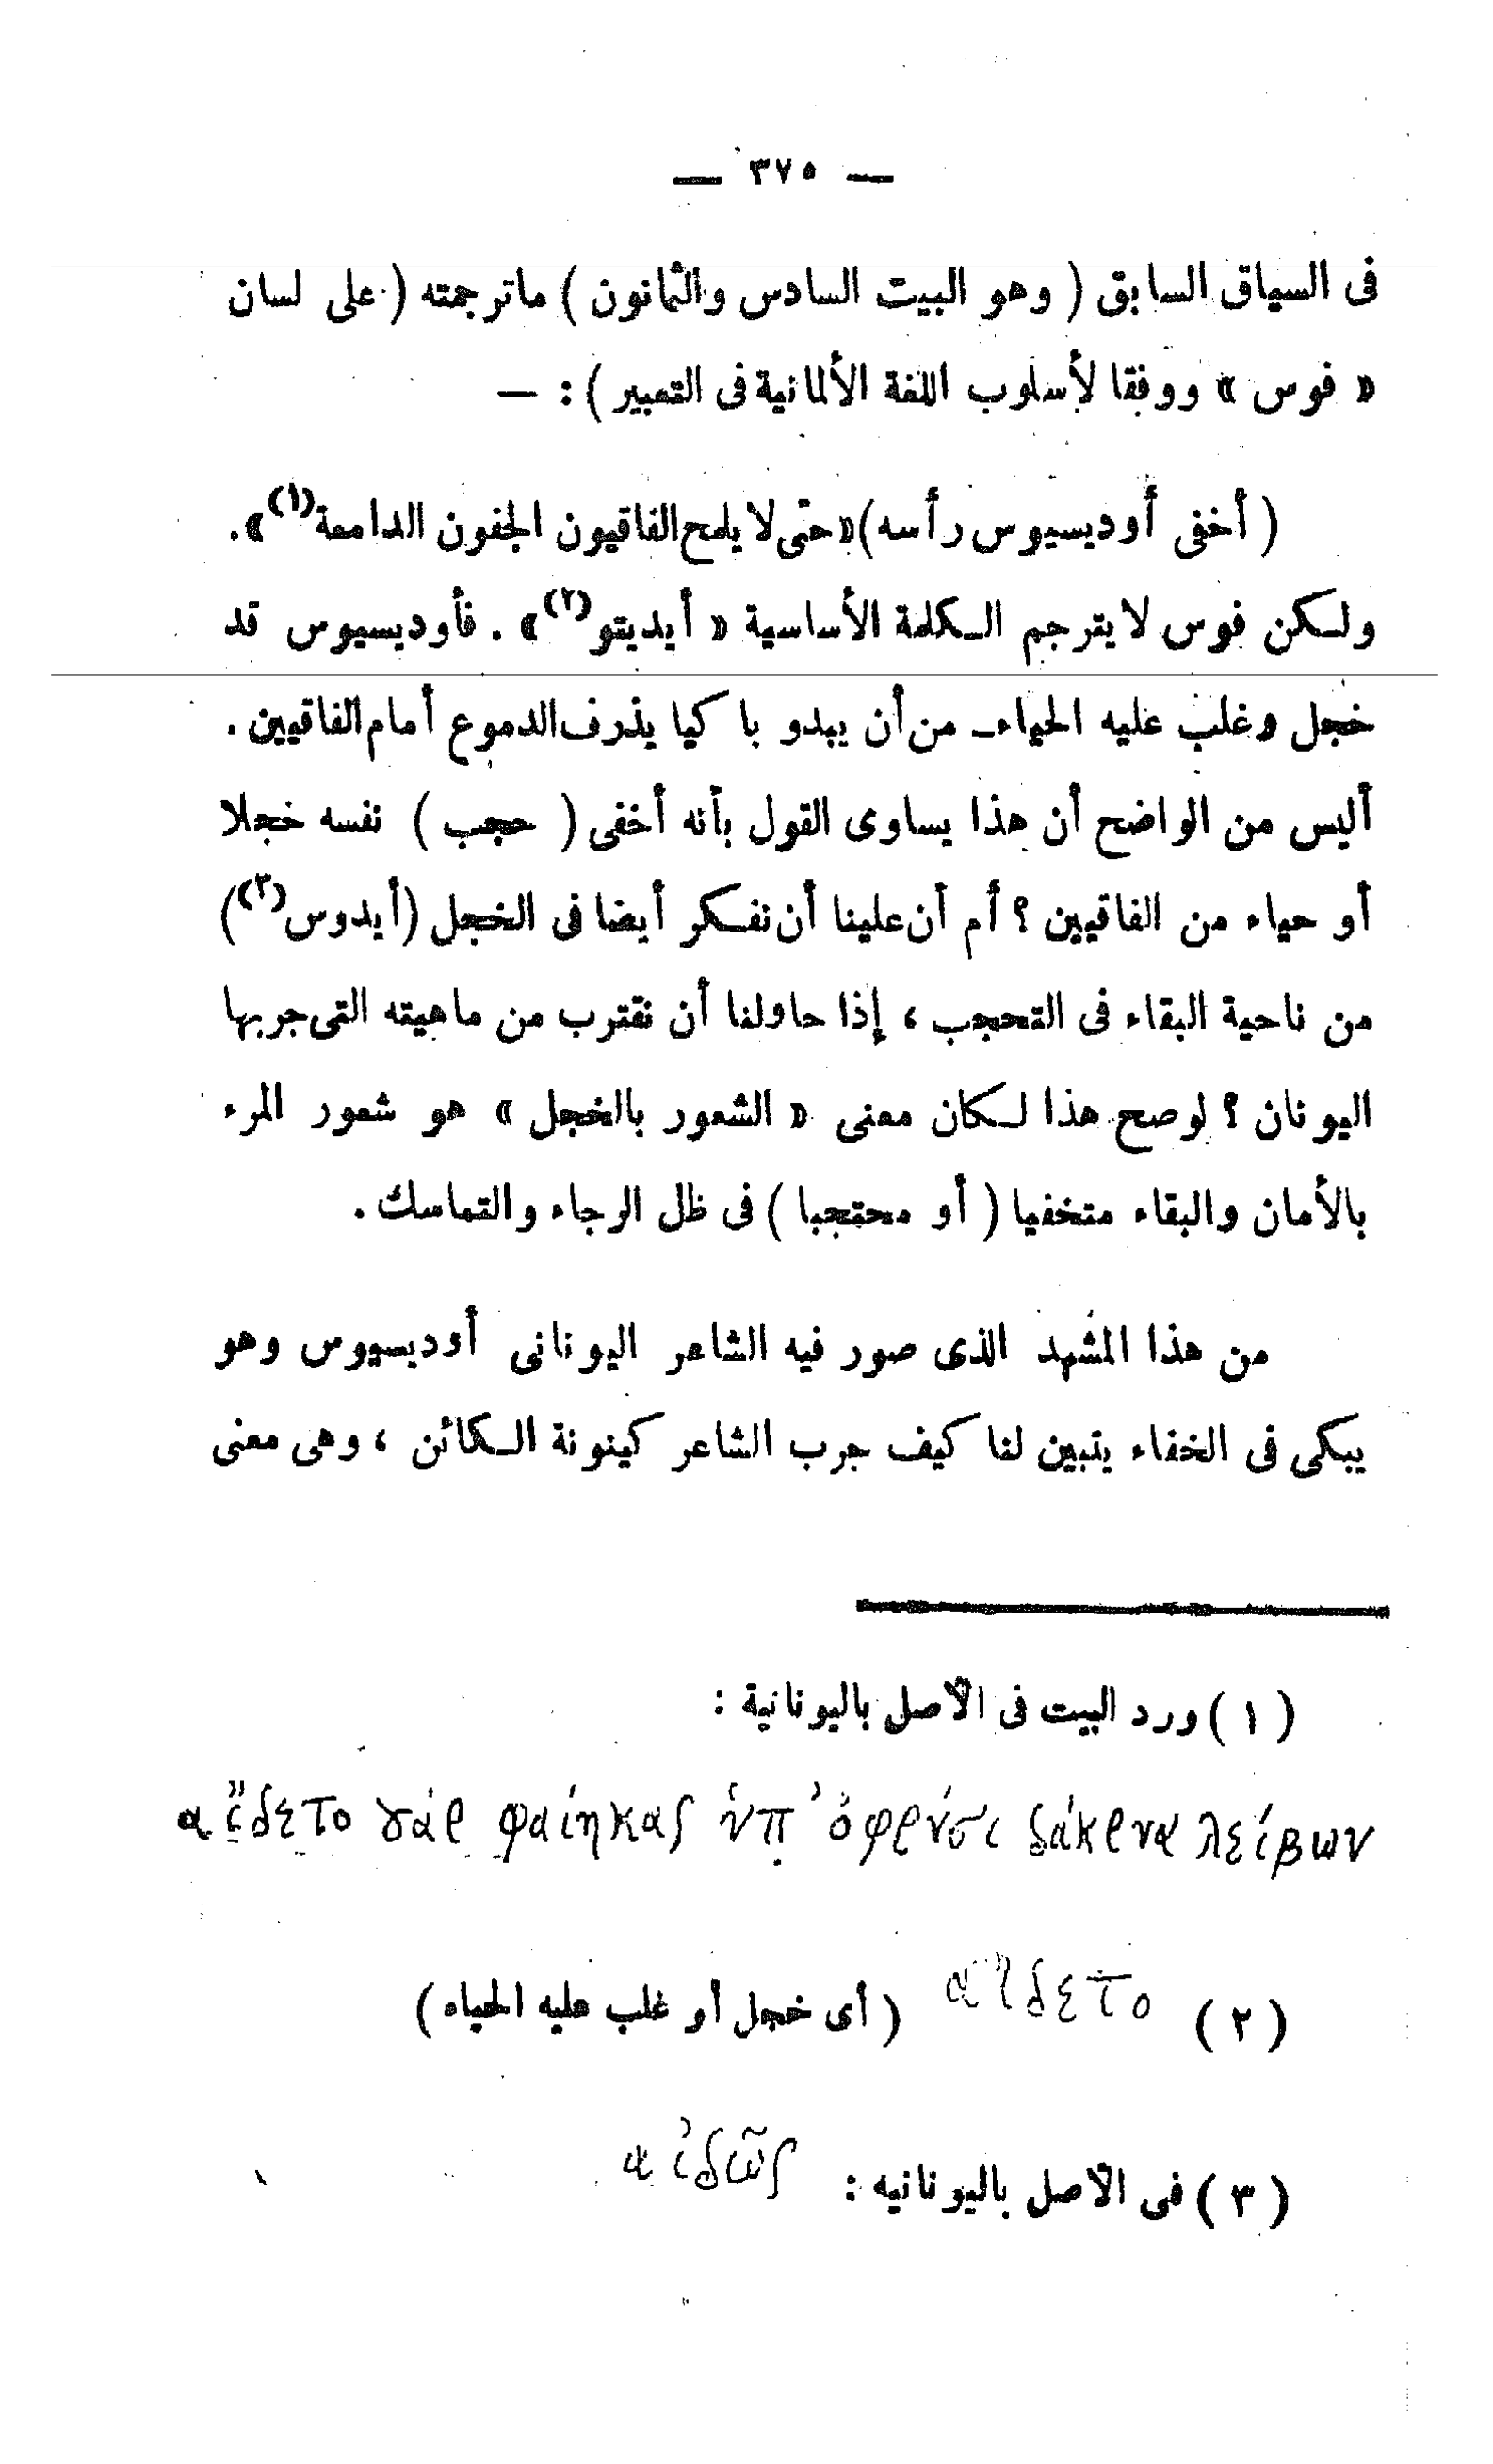 — ٣٧٥ —
فى السياق السابق ( وهو البيت السادس والثمانون ) ماترجمته ( على لسان
« فوس » ووفقا لأسلوب اللغة الألمانية فى التعبير ) : —
( أخفى أوديسيوس رأسه ) « حتى لا يلمح الفاقيون الجفون الدامعة(١) » .
ولكن فوس لا يترجم الكلمة الأساسية « أيديتو(٢) » . فأوديسيوس قد
خجل وغلب عليه الحياء من أن يبدو باكيا يذرف الدموع أمام الفاقيين .
أليس من الواضح أن هذا يساوى القول بأنه أخفى ( حجب ) نفسه خجلا
أو حياء من الفاقيين ؟ أم أن علينا أن نفكر أيضا فى الخجل (أيدوس(٣))
من ناحية البقاء فى التحجب ، إذا حاولنا أن نقترب من ماهيته التى جربها
اليونان ؟ لوصح هذا لكان معنى « الشعور بالخجل » هو شعور المرء
بالأمان والبقاء متخفيا ( أو محتجبا ) فى ظل الرجاء والتماسك .
من هذا المشهد الذى صور فيه الشاعر اليونانى أوديسيوس وهو
يبكى فى الخفاء يتبين لنا كيف جرب الشاعر كينونة الكائن ، وهى معنى
( ١ ) ورد البيت فى الأصل باليونانية :
αἴδετο γάρ φαίηκας ὑπ᾽ ὀφρύσι δάκρυα λείβων
( ٢ ) αἴδετο ( أى خجل أو غلب عليه الحياء )
( ٣ ) فى الأصل باليونانيه : αἰδῶς